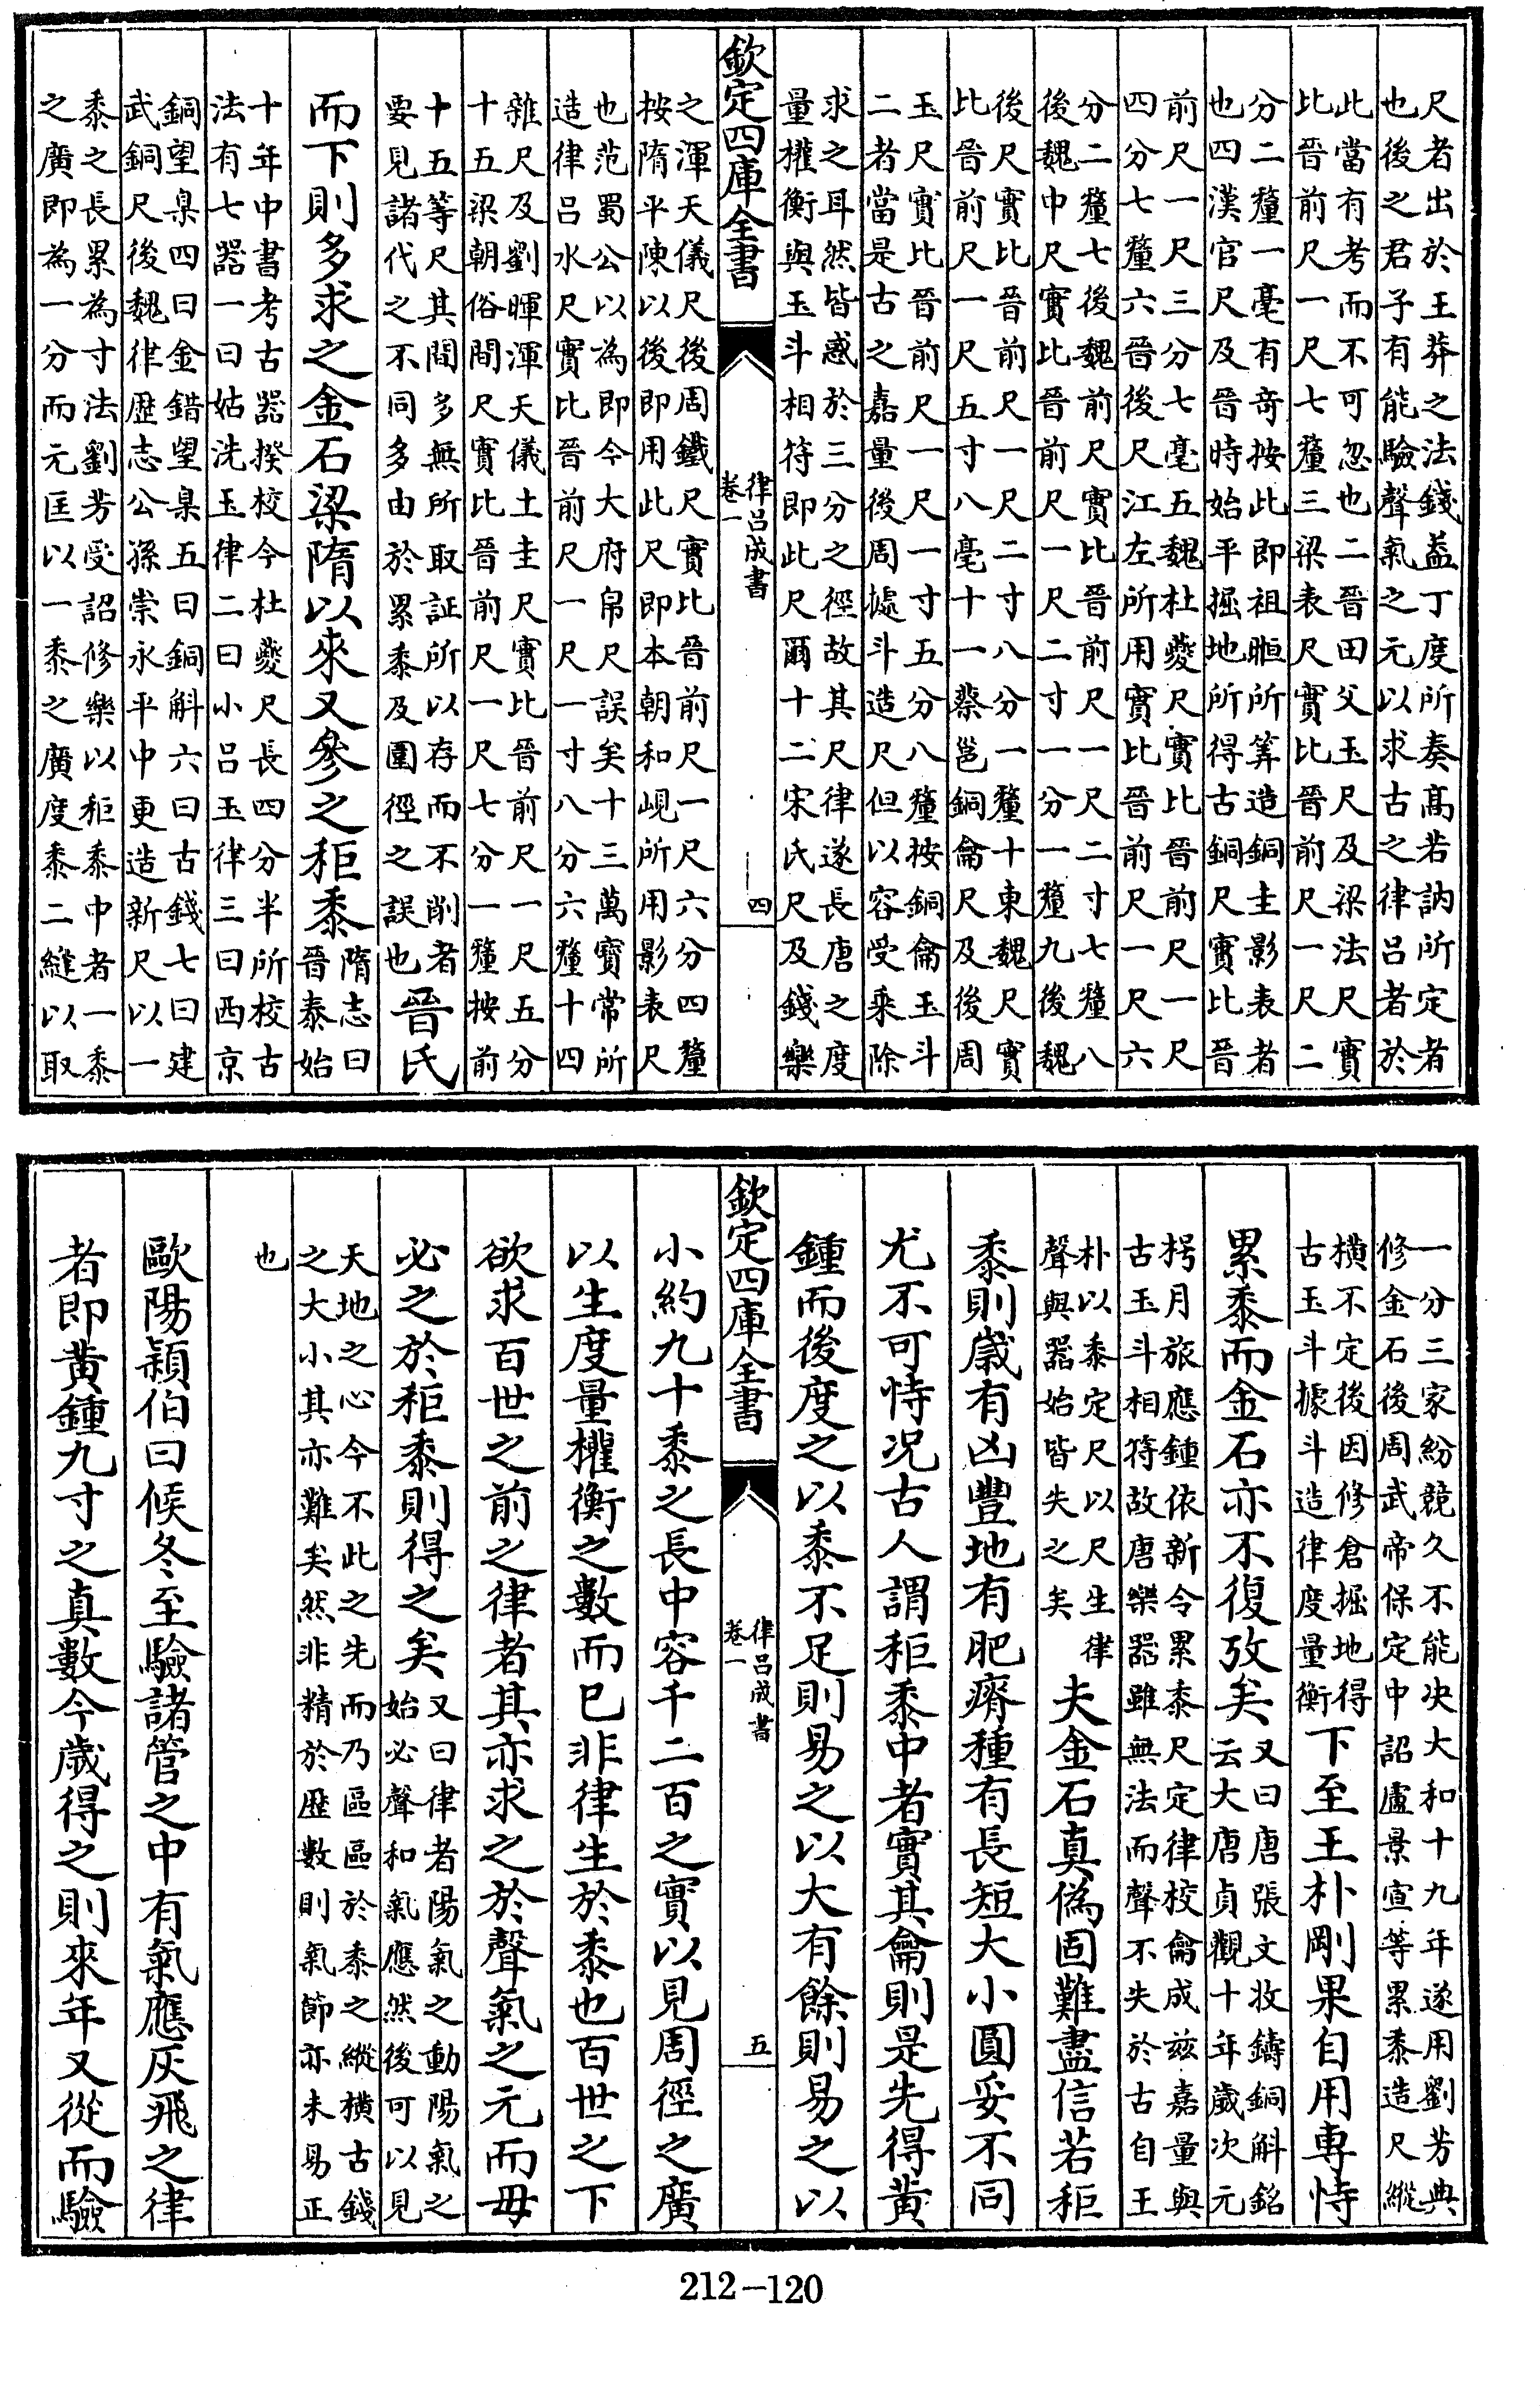 尺者出於王莽之法錢葢丁度所奏髙若訥所定者
也後之君子有能驗聲氣之元以求古之律呂者於
此當有考而不可忽也二晉田父玉尺及梁法尺實
比晉前尺一尺七釐三梁表尺實比晉前尺一尺二
分二釐一毫有奇按此即祖暅所筭造銅圭影表者
也四漢官尺及晉時始平掘地所得古銅尺實比晉
前尺一尺三分七毫五魏杜夔尺實比晉前尺一尺
四分七釐六晉後尺江左所用實比晉前尺一尺六
分二釐七後魏前尺實比晉前尺一尺二寸七釐八
後魏中尺實比晉前尺一尺二寸一分一釐九後魏
後尺實比晉前尺一尺二寸八分一釐十東魏尺實
比晉前尺一尺五寸八毫十一蔡邕銅龠尺及後周
玉尺實比晉前尺一尺一寸五分八釐按銅龠玉斗
二者當是古之嘉量後周據斗造尺但以容受乘除
求之耳然皆惑於三分之徑故其尺律遂長唐之度
量權衡與玉斗相符即此尺爾十二宋氏尺及錢樂
欽定四庫全書
律呂成書
卷一
四
之渾天儀尺後周鐵尺實比晉前尺一尺六分四釐
按隋平陳以後即用此尺即本朝和峴所用影表尺
也范蜀公以為即今大府帛尺誤矣十三萬寶常所
造律呂水尺實比晉前尺一尺一寸八分六釐十四
雜尺及劉暉渾天儀土圭尺實比晉前尺一尺五分
十五梁朝俗間尺實比晉前尺一尺七分一釐按前
十五等尺其間多無所取証所以存而不削者
要見諸代之不同多由於累黍及圍徑之誤也晉氏
而下則多求之金石梁隋以來又參之秬黍隋志曰
晉泰始
十年中書考古器揆校今杜夔尺長四分半所校古
法有七器一曰姑洗玉律二曰小呂玉律三曰西京
銅望臬四曰金錯望臬五曰銅斛六曰古錢七曰建
武銅尺後魏律歴志公孫崇永平中更造新尺以一
黍之長累為寸法劉芳受詔修樂以秬黍中者一黍
之廣即為一分而元匡以一黍之廣度黍二縫以取
一分三家紛競久不能决大和十九年遂用劉芳典
修金石後周武帝保定中詔盧景宣等累黍造尺縱
橫不定後因修倉掘地得
古玉斗據斗造律度量衡下至王朴剛果自用專恃
累黍而金石亦不復攷矣又曰唐張文收鑄銅斛銘
云大唐貞觀十年歲次元
枵月旅應鍾依新令累黍尺定律校龠成兹嘉量與
古玉斗相符故唐樂器雖無法而聲不失於古自王
朴以黍定尺以尺生律
聲與器始皆失之矣夫金石真偽固難盡信若秬
黍則歲有凶豐地有肥瘠種有長短大小圓妥不同
尤不可恃况古人謂秬黍中者實其龠則是先得黄
鍾而後度之以黍不足則易之以大有餘則易之以
欽定四庫全書
律呂成書
卷一
五
小約九十黍之長中容千二百之實以見周徑之廣
以生度量權衡之數而已非律生於黍也百世之下
欲求百世之前之律者其亦求之於聲氣之元而毋
必之於秬黍則得之矣又曰律者陽氣之動陽氣之
始必聲和氣應然後可以見
天地之心今不此之先而乃區區於黍之縱橫古錢
之大小其亦難矣然非精於歴數則氣節亦未易正
也
歐陽穎伯曰候冬至驗諸管之中有氣應灰飛之律
者即黄鍾九寸之真數今歲得之則來年又從而驗
212-120